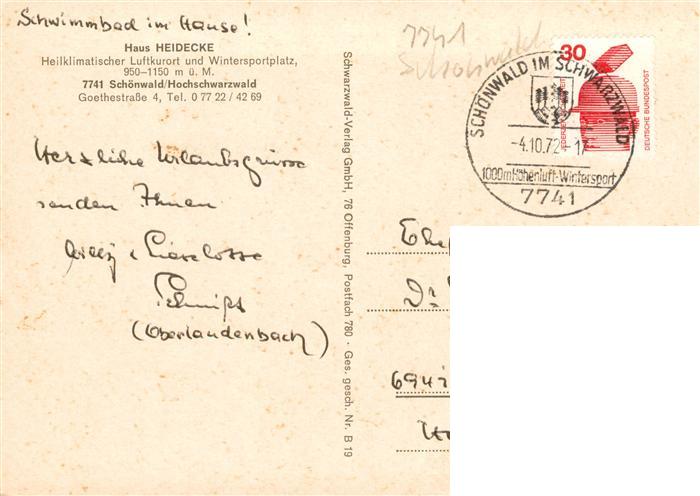 Schwimmbad im Hause!
Haus HEIDECKE
Heilklimatischer Luftkurort und Wintersportplatz,
950–1150 m ü. M.
7741 Schönwald/Hochschwarzwald
Goethestraße 4, Tel. 0 77 22 / 42 69
Herzliche Urlaubsgrüsse
senden Ihnen
Willy & Lieselotte
Schmidt
(Oberlaudenbach)
Schwarzwald-Verlag GmbH, 76 Offenburg, Postfach 780 · Ges. gesch. Nr. B 19
7741
Schönwald
30
DEUTSCHE BUNDESPOST
SCHÖNWALD IM SCHWARZWALD
-4.10.72-17
1000m Höhenluft-Wintersport
7741
Dr